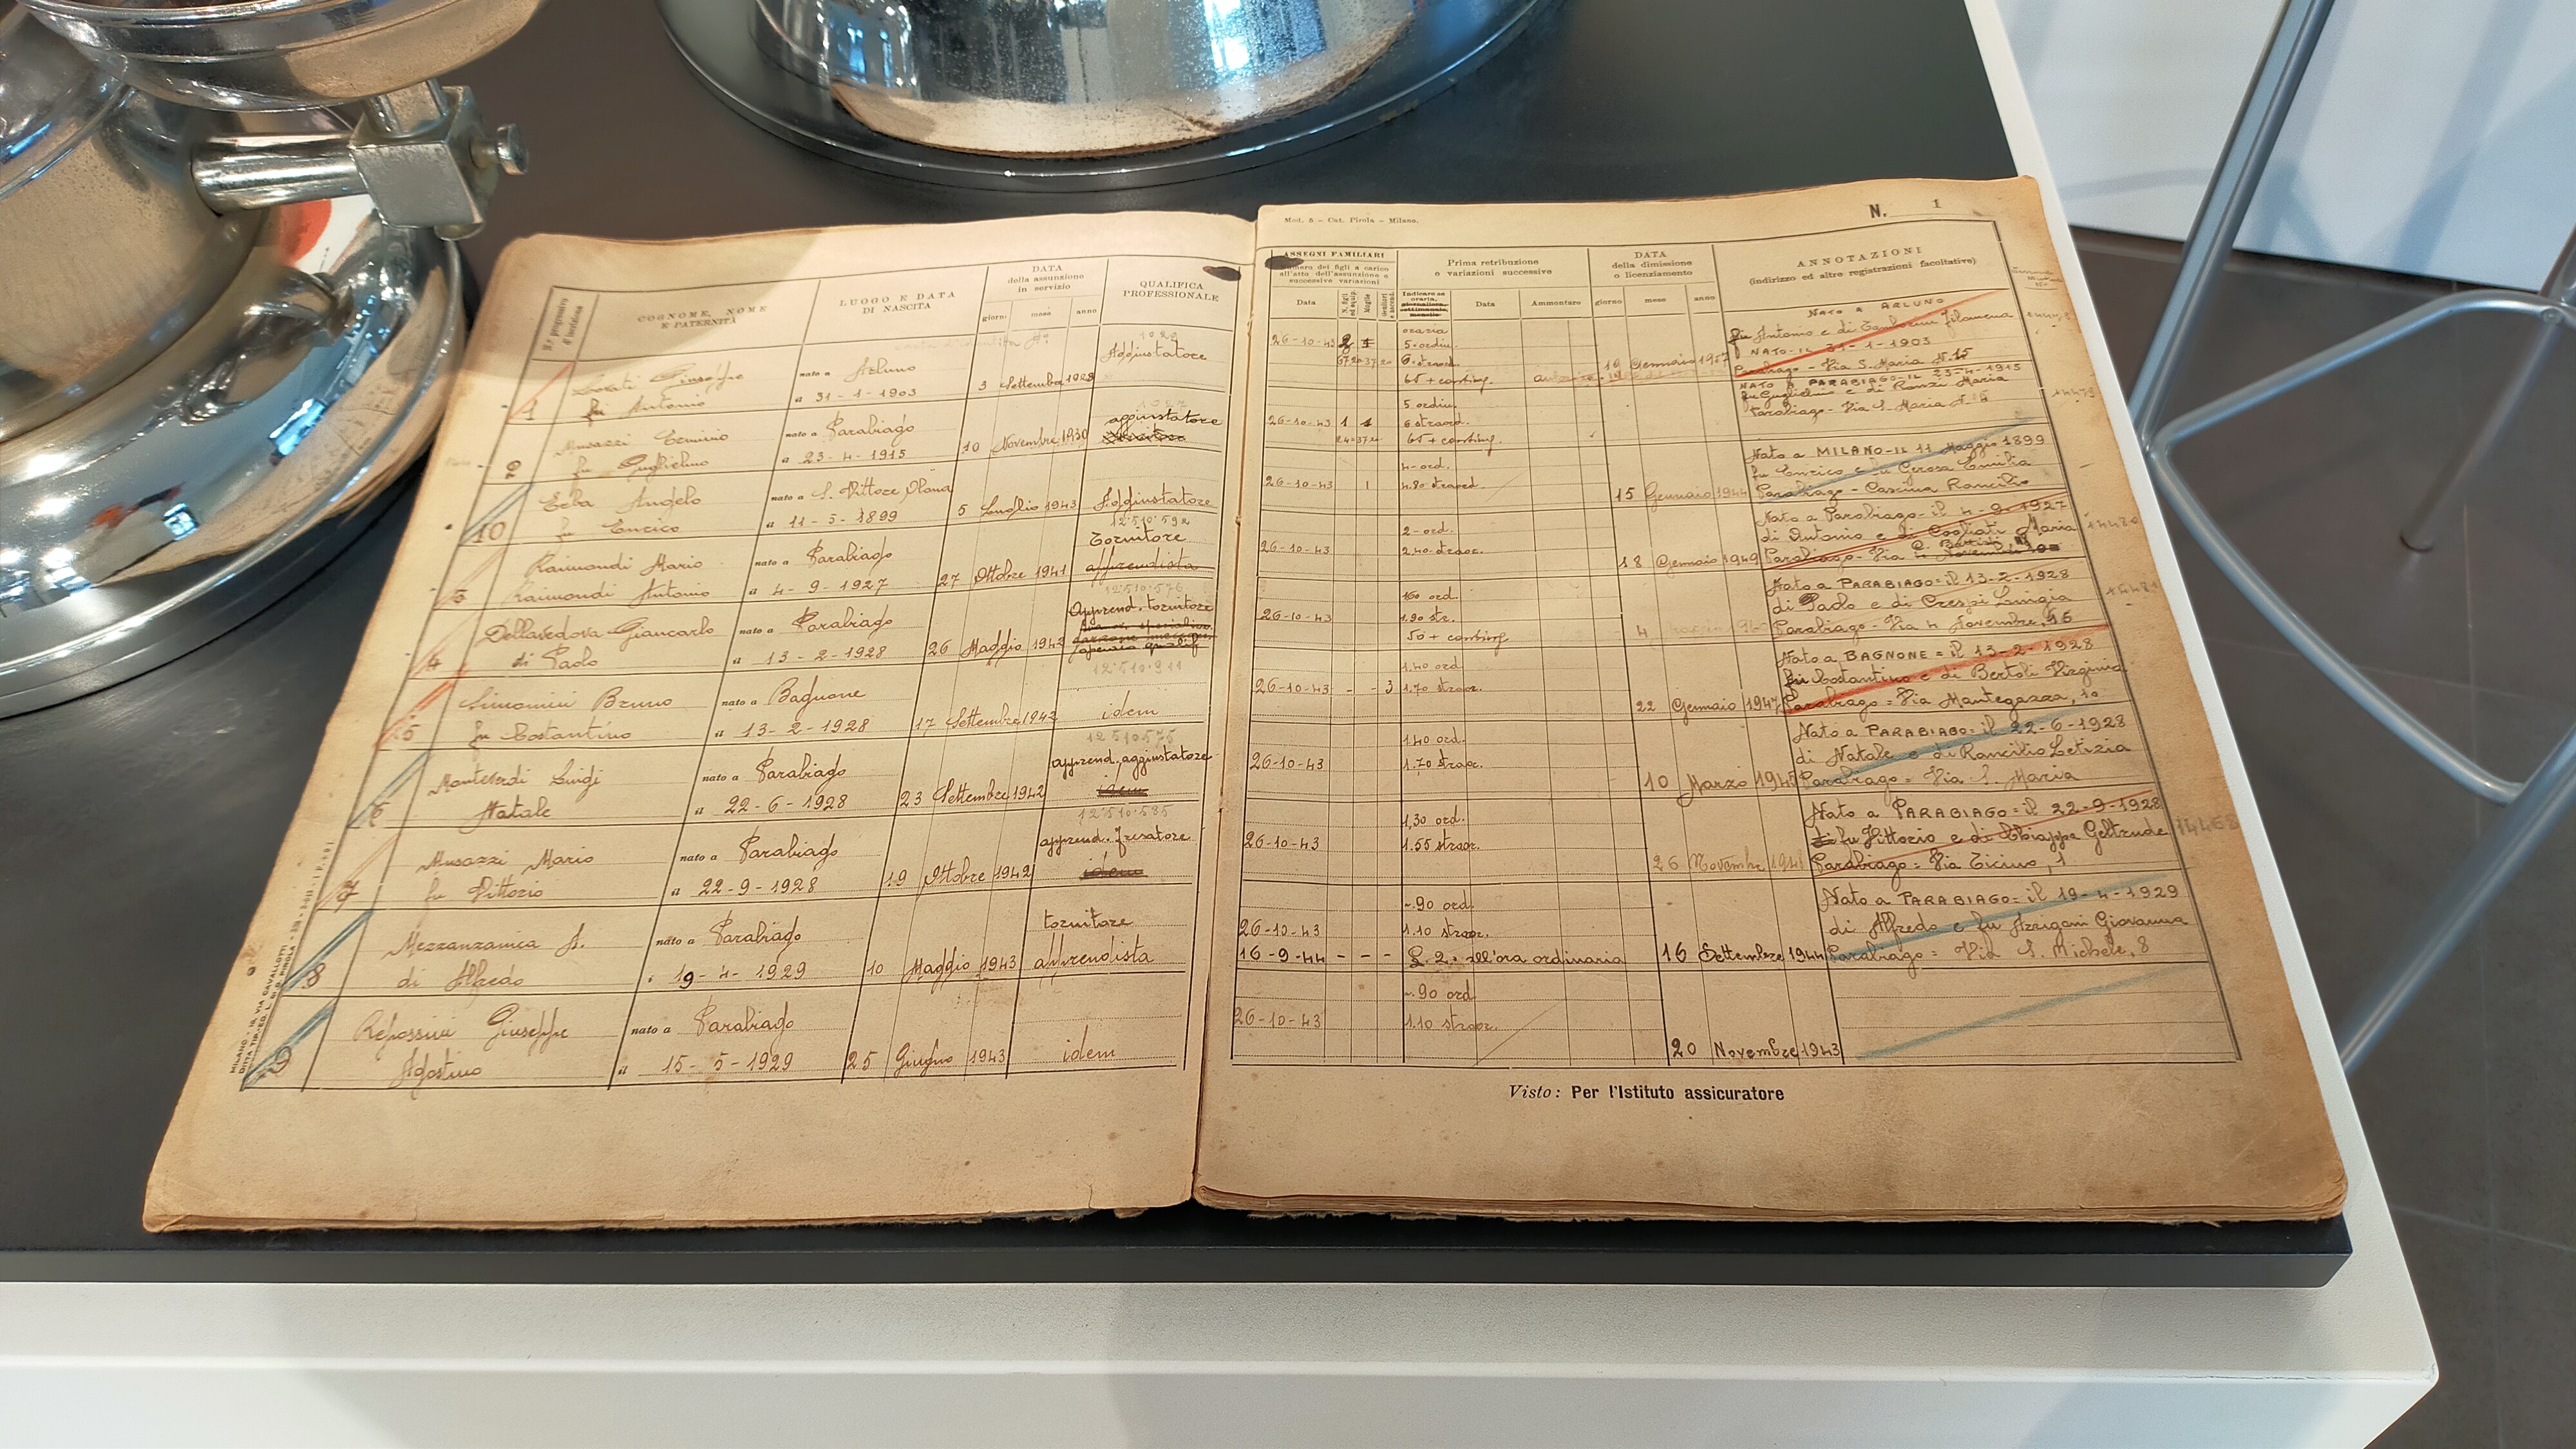 N.° progressivo d'iscrizione
COGNOME, NOME
E PATERNITÀ
LUOGO E DATA
DI NASCITA
DATA
della assunzione
in servizio
giorno mese anno
QUALIFICA
PROFESSIONALE
Aggiustatore
Giuseppe nato a Arluno
1 fu Antonio a 31-1-1903 3 Settembre 1928
aggiustatore
Musazzi Erminio nato a Parabiago
2 fu Guglielmo a 23-4-1915 10 Novembre 1930
Erba Angelo nato a S. Vittore Olona
10 fu Enrico a 11-5-1899 5 Luglio 1943 Aggiustatore
12510592
Tornitore
Raimondi Mario nato a Parabiago
3 Raimondi Antonio a 4-9-1927 27 Ottobre 1941 apprendista
12510576
Apprend. tornitore
Dellavedova Giancarlo nato a Parabiago
4 di Paolo a 13-2-1928 26 Maggio 1942
12510911
Simonini Bruno nato a Bagnone
5 fu Costantino a 13-2-1928 17 Settembre 1942 idem
12510575
apprend. aggiustatore
Monteverdi Luigi nato a Parabiago
6 Natale a 22-6-1928 23 Settembre 1942 idem
12510585
apprend. fresatore
Musazzi Mario nato a Parabiago
7 fu Vittorio a 22-9-1928 19 Ottobre 1942 idem
tornitore
Mezzanzanica A. nato a Parabiago
8 di Alfredo a 19-4-1929 10 Maggio 1943 apprendista
Repossini Giuseppe nato a Parabiago
9 Agostino a 15-5-1929 25 Giugno 1943 idem
Mod. 5 - Cat. Pirola - Milano.
N. 1
ASSEGNI FAMILIARI
Numero dei figli a carico
all'atto dell'assunzione e
successive variazioni
Data
Moglie
Prima retribuzione
e variazioni successive
Indicare se
oraria,
giornaliera,
settimanale,
mensile
Data Ammontare
DATA
della dimissione
o licenziamento
giorno mese anno
ANNOTAZIONI
(indirizzo ed altre registrazioni facoltative)
NATO A ARLUNO
oraria
fu Antonio e di Filomena
26-10-43 5. ordin.
NATO IL 31-1-1903
6. straord. 19 Gennaio 1957
Parabiago - Via S. Maria N. 15
65 + conting.
NATO A PARABIAGO IL 23-4-1915
fu Guglielmo e di Ranzi Maria
5 ordin.
Parabiago - Via S. Maria N.
26-10-43 1 1 6 straord.
65 + conting.
Nato a MILANO - IL 11 Maggio 1899
4- ord.
fu Enrico e fu Gerosa Emilia
26-10-43 1 4.80 straord.
15 Gennaio 1944 Parabiago - Cascina Rancilio
Nato a Parabiago - il 4-9-1927
2- ord.
di Antonio e di Cogliati Maria
26-10-43 2.40 straor.
18 Gennaio 1949 Parabiago - Via
Nato a PARABIAGO = il 13-2-1928
160 ord.
di Paolo e di Crespi Luigia
26-10-43 1.90 str.
Parabiago - Via 4 Novembre, 46
50 + conting
Nato a BAGNONE = il 13-2-1928
1.40 ord
fu Costantino e di Bertoli Virginia
26-10-43 - - 3 1.70 straor.
22 Gennaio 1947 Parabiago = Via Mantegazza, 10
Nato a PARABIAGO = il 22-6-1928
1.40 ord.
di Natale e di Rancilio Letizia
26-10-43 1.70 straor.
10 Marzo 1945 Parabiago = Via S. Maria
Nato a PARABIAGO = il 22-9-1928
1,30 ord.
di fu Vittorio e di Chiappa Geltrude
26-10-43 1.55 straor.
26 Novembre Parabiago = Via Ticino, 1
Nato a PARABIAGO = il 19-4-1929
-.90 ord.
di Alfredo e fu Arrigoni Giovanna
26-10-43 1.10 straor.
16-9-44 - - - £. 2. all'ora ordinaria 16 Settembre 1944 Parabiago = Via S. Michele, 8
-.90 ord
26-10-43 1.10 straor.
20 Novembre 1943
Visto: Per l'Istituto assicuratore